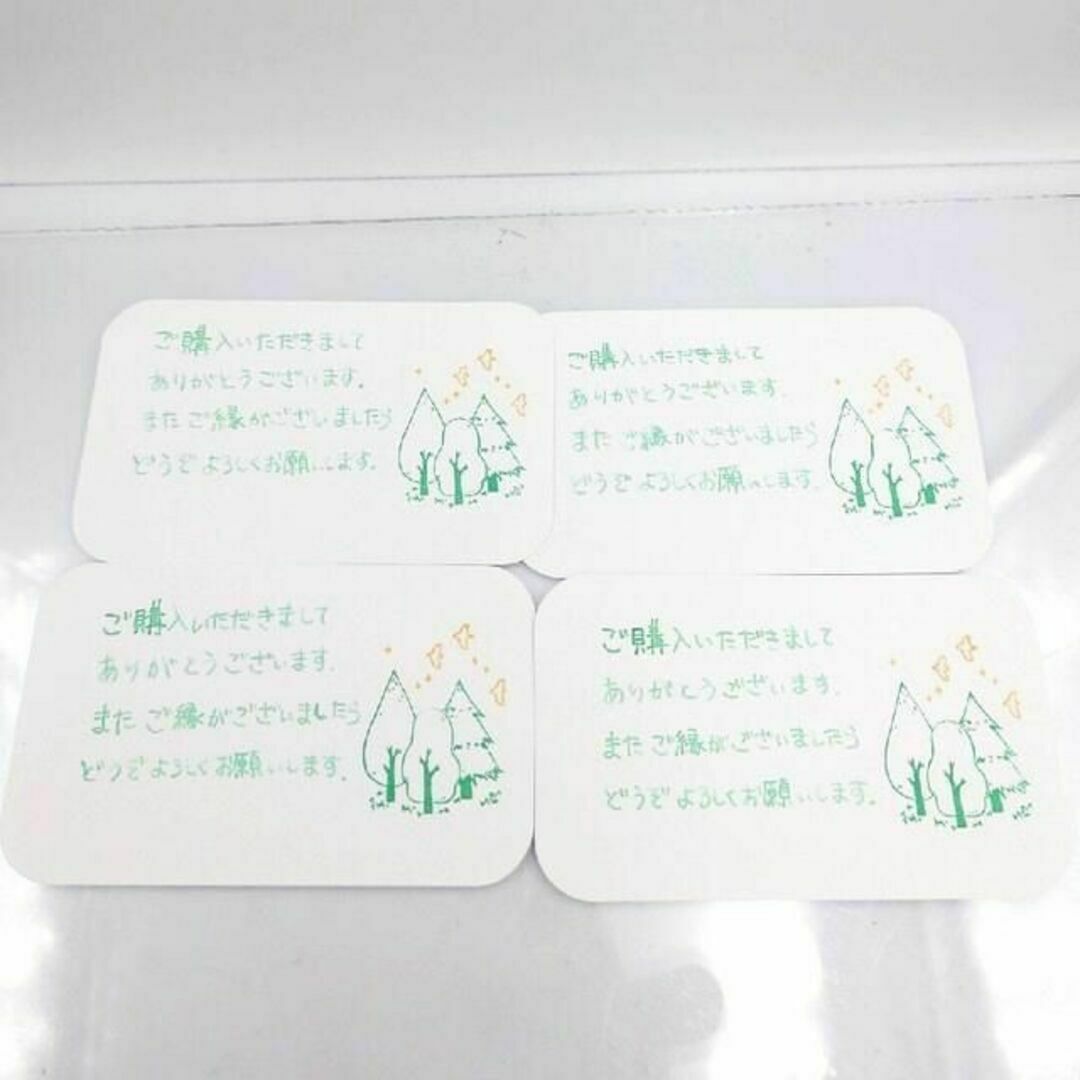 ご購入いただきまして
ありがとうございます.
またご縁がございましたら
どうぞよろしくお願いします.
ご購入いただきまして
ありがとうございます.
またご縁がございましたら
どうぞよろしくお願いします.
ご購入いただきまして
ありがとうございます.
またご縁がございましたら
どうぞよろしくお願いします.
ご購入いただきまして
ありがとうございます.
またご縁がございましたら
どうぞよろしくお願いします.